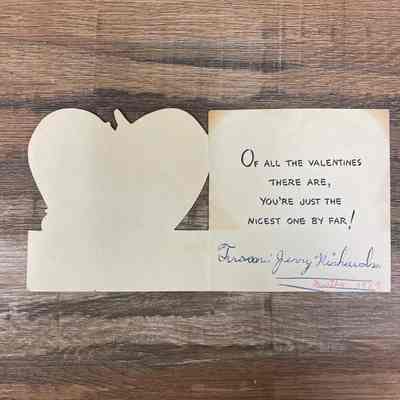 OF ALL THE VALENTINES
THERE ARE,
YOU'RE JUST THE
NICEST ONE BY FAR!
From: Jerry Richards